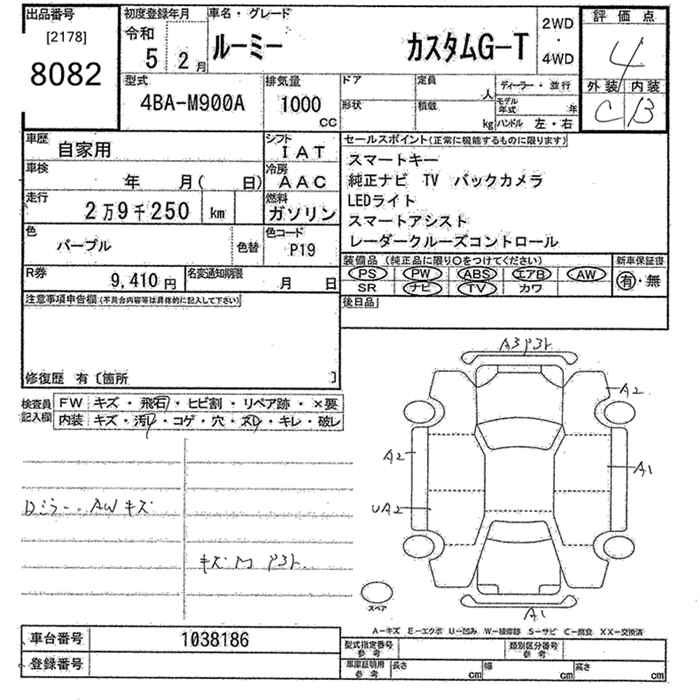 出品番号
[2178]
8082
初度登録年月
令和
5 2月
車名・グレード
ルーミー カスタムG-T
2WD
・
4WD
評価点
4
外装 内装
C B
型式
4BA-M900A
排気量
1000
CC
ドア
形状
定員
人
積載
kg
ディーラー・並行
モデル年式 年
ハンドル 左・右
車歴
自家用
シフト
IAT
車検
年 月( 日)
冷房
AAC
走行
2万9千250 km
燃料
ガソリン
色
パープル
色替
色コード
P19
R券
9,410円
名変通知期限
月 日
セールスポイント(正常に機能するものに限ります)
スマートキー
純正ナビ TV バックカメラ
LEDライト
スマートアシスト
レーダークルーズコントロール
装備品(純正品に限り○をつけてください)
新車保証書
PS PW ABS エアB AW
SR ナビ TV カワ
有・無
後日品
注意事項申告欄(不具合内容等は具体的に記入して下さい)
修復歴 有〔箇所 〕
検査員記入欄
FW キズ・飛石・ヒビ割・リペア跡・×要
内装 キズ・汚レ・コゲ・穴・スレ・キレ・破レ
Dミラー、AWキズ
キズM P3ト
A3P3ト
A2
A2
A1
UA2
A1
スペア
A-キズ E-エクボ U-凹み W-補修跡 S-サビ C-腐食 XX-交換済
車台番号
1038186
登録番号
型式指定番号
参考
類別区分番号
参考
車庫証明用
参考
長さ cm
幅 cm
高さ cm